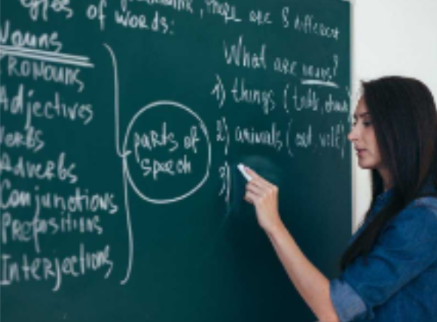 types of words:
there are 8 different
Nouns
PRONOUNS
Adjectives
Verbs
Adverbs
Conjunctions
Prepositions
Interjections
parts of
speech
What are nouns?
1) things (
2) animals (
3)